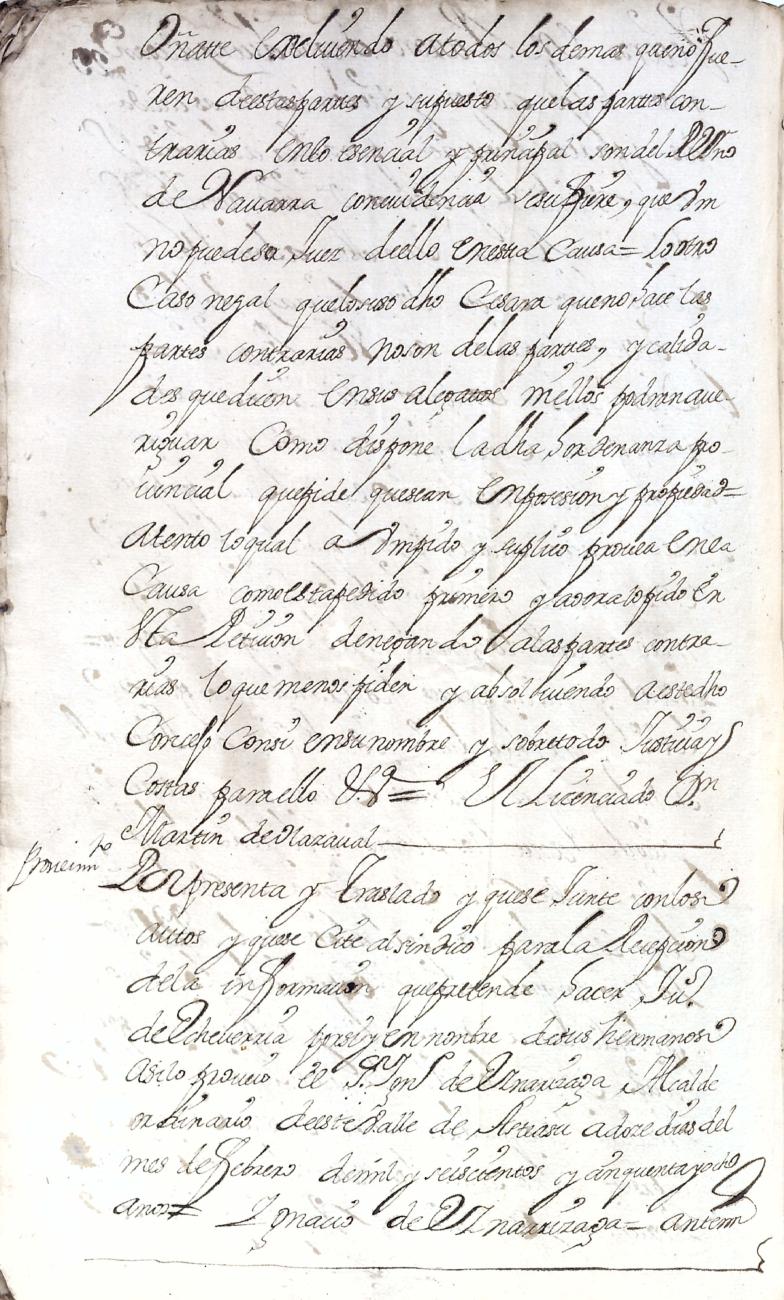 Oñatte excluiendo atodos los demas queno fue-
ren deestaspartes y supuesto quelas partes con-
trarias enlo esencial y prinçipal son del Reyno
de Navarra coneuidencia seinfiere, que Vm
nopuedeser Juez deello enesta Causa= Lo otro
Caso negal quelosusodho Cesara queno hace las
partes contrarias noson delas partes, y calida-
des quediçen ensus alegatos niellos podran aue-
riguar Como dispone ladha hordenanza pro-
uincial quepide quesean enposesion y propiedad=
Atento loqual a Vm pido y suplico prouea enla
Causa comoestapedido primero y aora lo pido en
esta Peticion denegando alaspartes contra-
rias loquemenos piden y absoluiendo aestedho
Concejo Consu ensunombre y sobretodo Justicia y
Costas paraello &ª = El Licenciado Dn
Martin de Olazaual
Proueimto
Por presenta y Traslado y quese Junte conlos
autos y quese Cite alsindico parala Recepcion
dela informacion quepretende hacer Ju
de Echeverria porsi y en nonbre desus hermanos
Asilo proueio el Sr Ignº de Vnarrizaga Alcalde
ordinario deeste Valle de Astiasu adoze dias del
mes de febrero demil y seiscientos y çinquenta y ocho
anos= Ignacio de Vnarrizaga= antemi